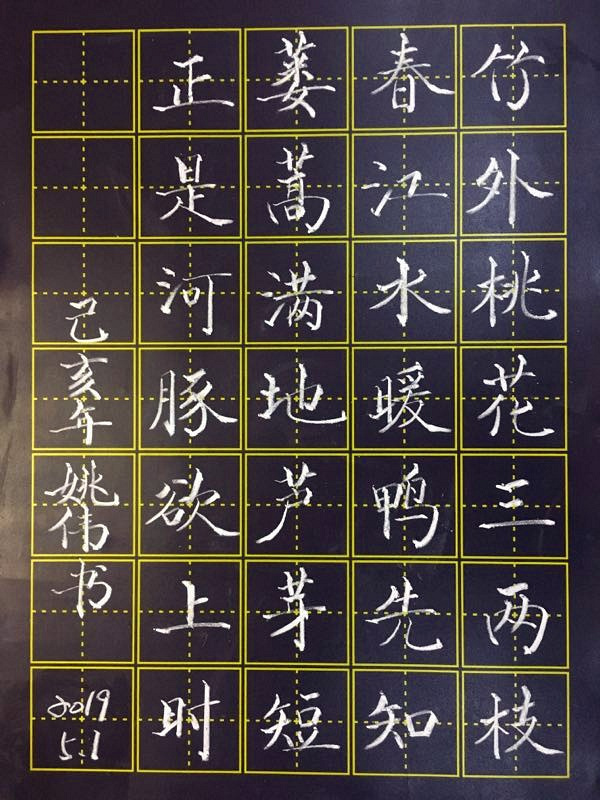 竹外桃花三两枝
春江水暖鸭先知
蒌蒿满地芦芽短
正是河豚欲上时
己亥年姚伟书
2019
5.1